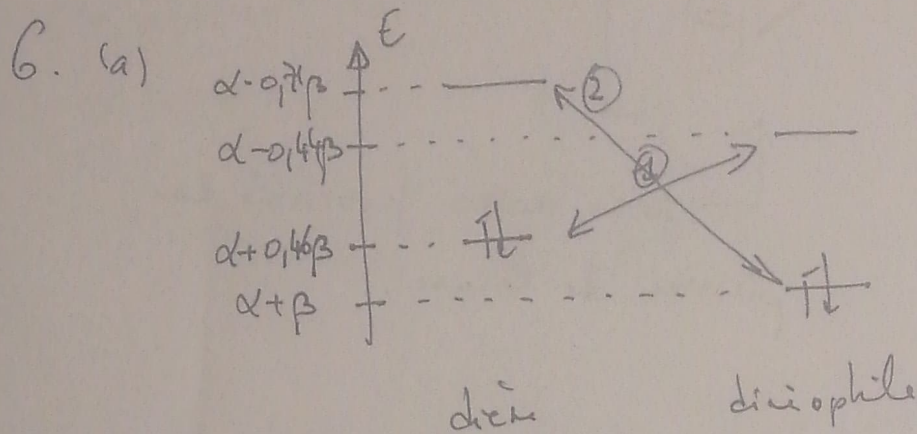 6. (a)
E
α-0,71β
②
α-0,44β
①
α+0,46β
α+β
diène
diénophile